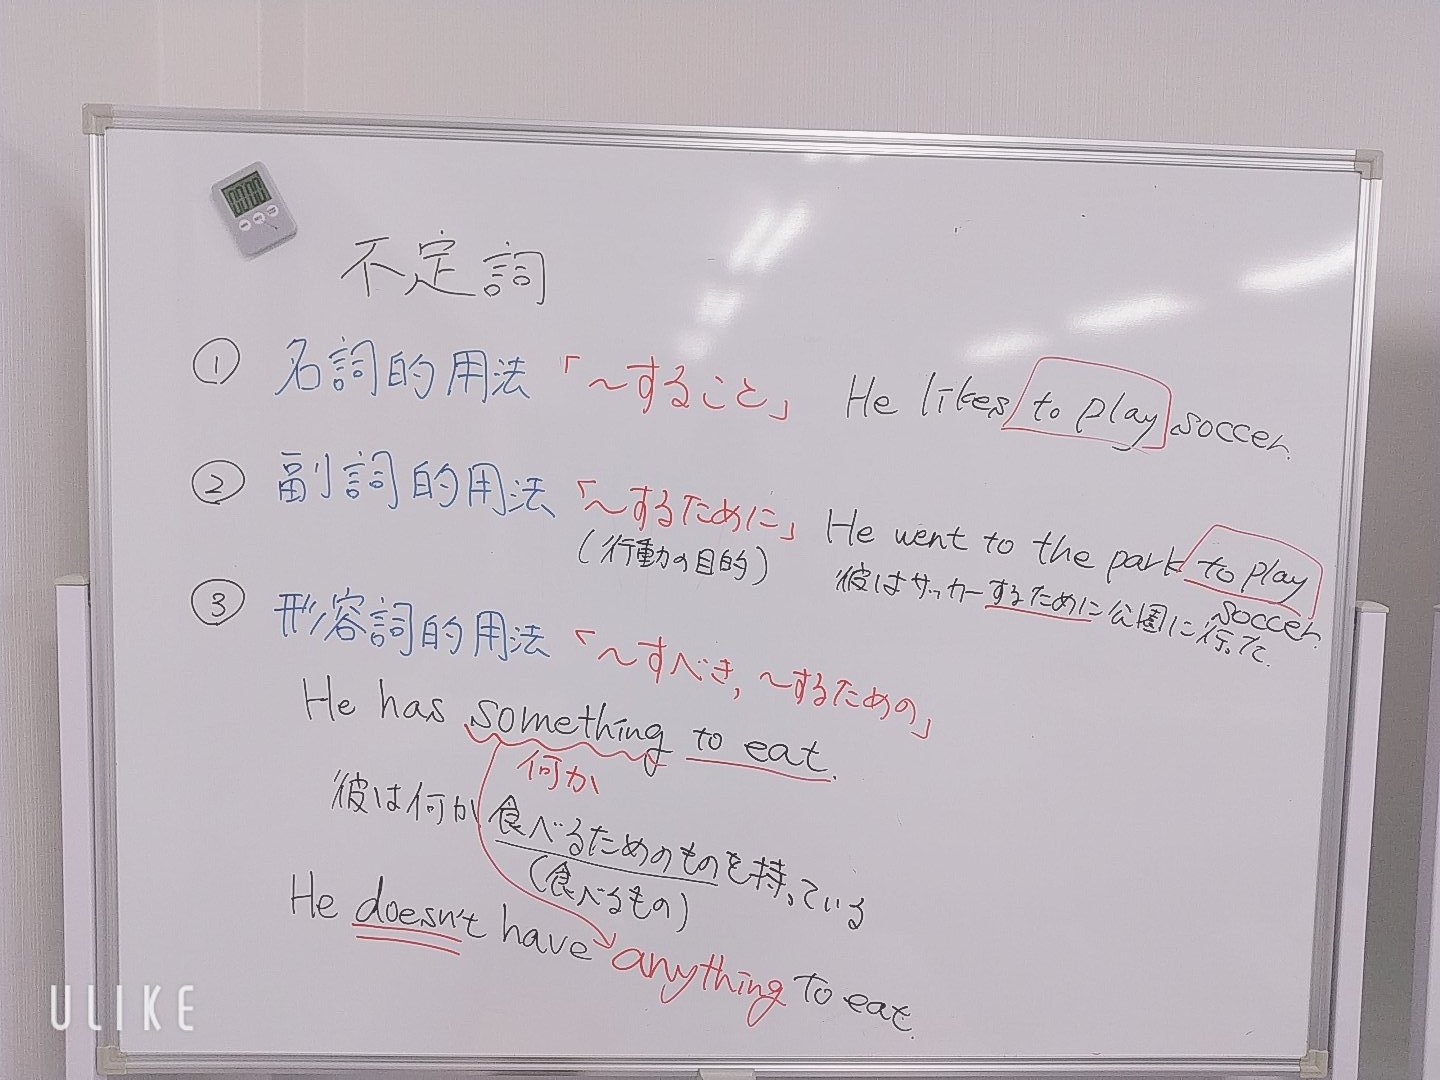 00:00
不定詞
① 名詞的用法 「～すること」 He likes to play soccer.
② 副詞的用法 「～するために」 He went to the park to play soccer.
(行動の目的)
彼はサッカーするために公園に行った.
③ 形容詞的用法 「～すべき, ～するための」
He has something to eat.
何か
彼は何か食べるためのものを持っている
(食べるもの)
He doesn't have anything to eat.
ULIKE